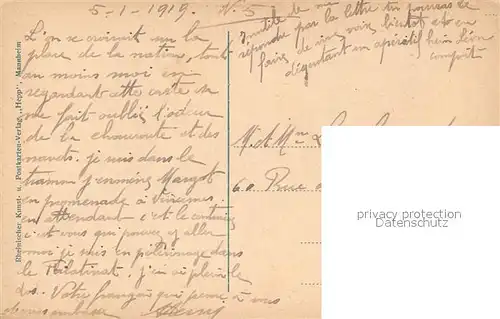 5-1-1919. N. 5
L'on se croirait sur la
place de la nation, tout
au moins moi en
regardant cette carte
me fait oublier l'odeur
de la choucroute et des
navets. je suis dans le
tramm j'emmène Margot
en promenade à Vincennes
en attendant c'est le contraire
c'est vous qui pouvez y aller
moi je suis en pélerinage dans
le Palatinat. j'en ai plein le
dos. Votre français qui pense à vous
Inutile de me
répondre par la lettre tu pourras le
faire de vive voix bientôt et en
dégustant un apéritif hein Léon
confort
M. et Mme L
60 Rue
Rheinischer Kunst- u. Postkarten-Verlag „Hepp", Mannheim
privacy protection
oldthing.de